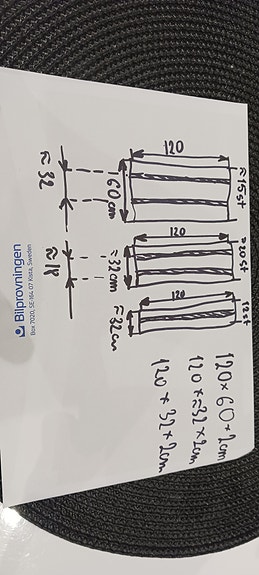 120
≈15st
60cm
≈32
120
≈20st
≈32cm
≈18
120
12st
≈32cm
120 × 60 × 2cm
120 × ≈32 × 2cm
120 × 32 × 2cm
Bilprovningen
Box 7020, SE 164 07 Kista, Sweden